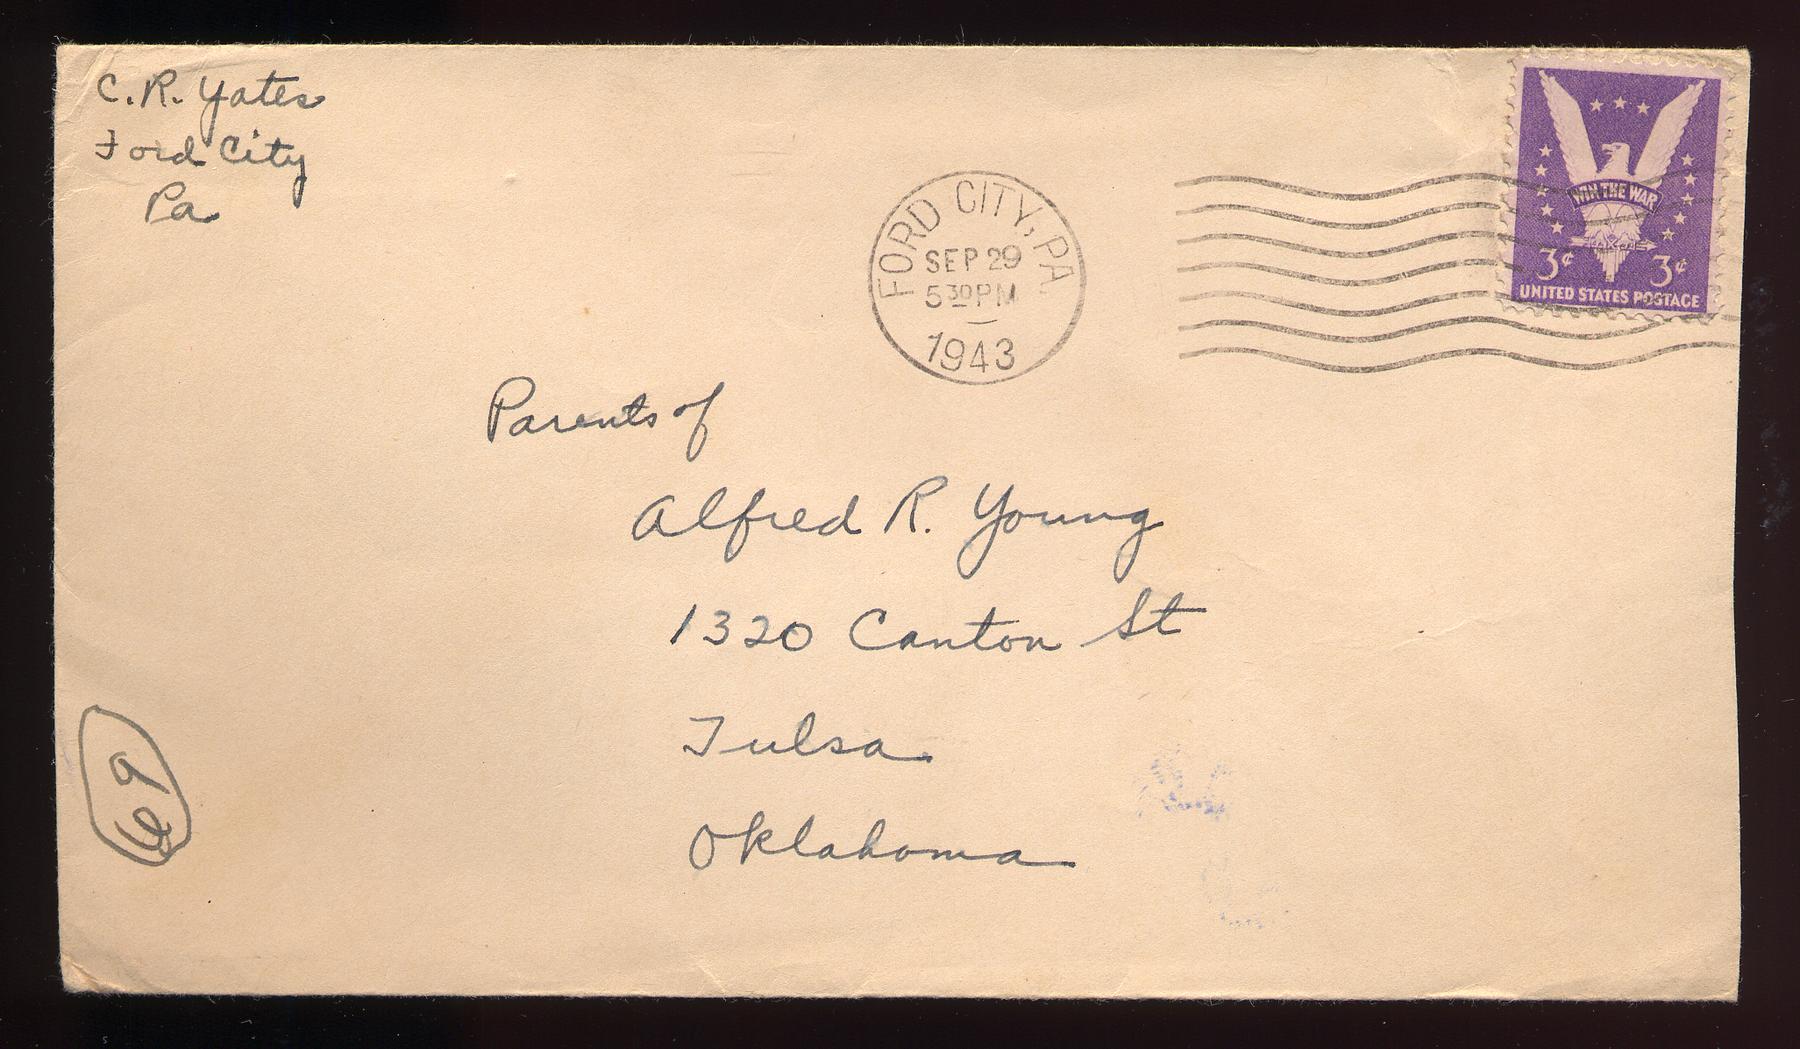 C. R. Yates
Ford City
Pa
FORD CITY, PA
SEP 29
5 30 PM
1943
WIN THE WAR
3¢ 3¢
UNITED STATES POSTAGE
Parents of
Alfred R. Young
1320 Canton St
Tulsa
Oklahoma